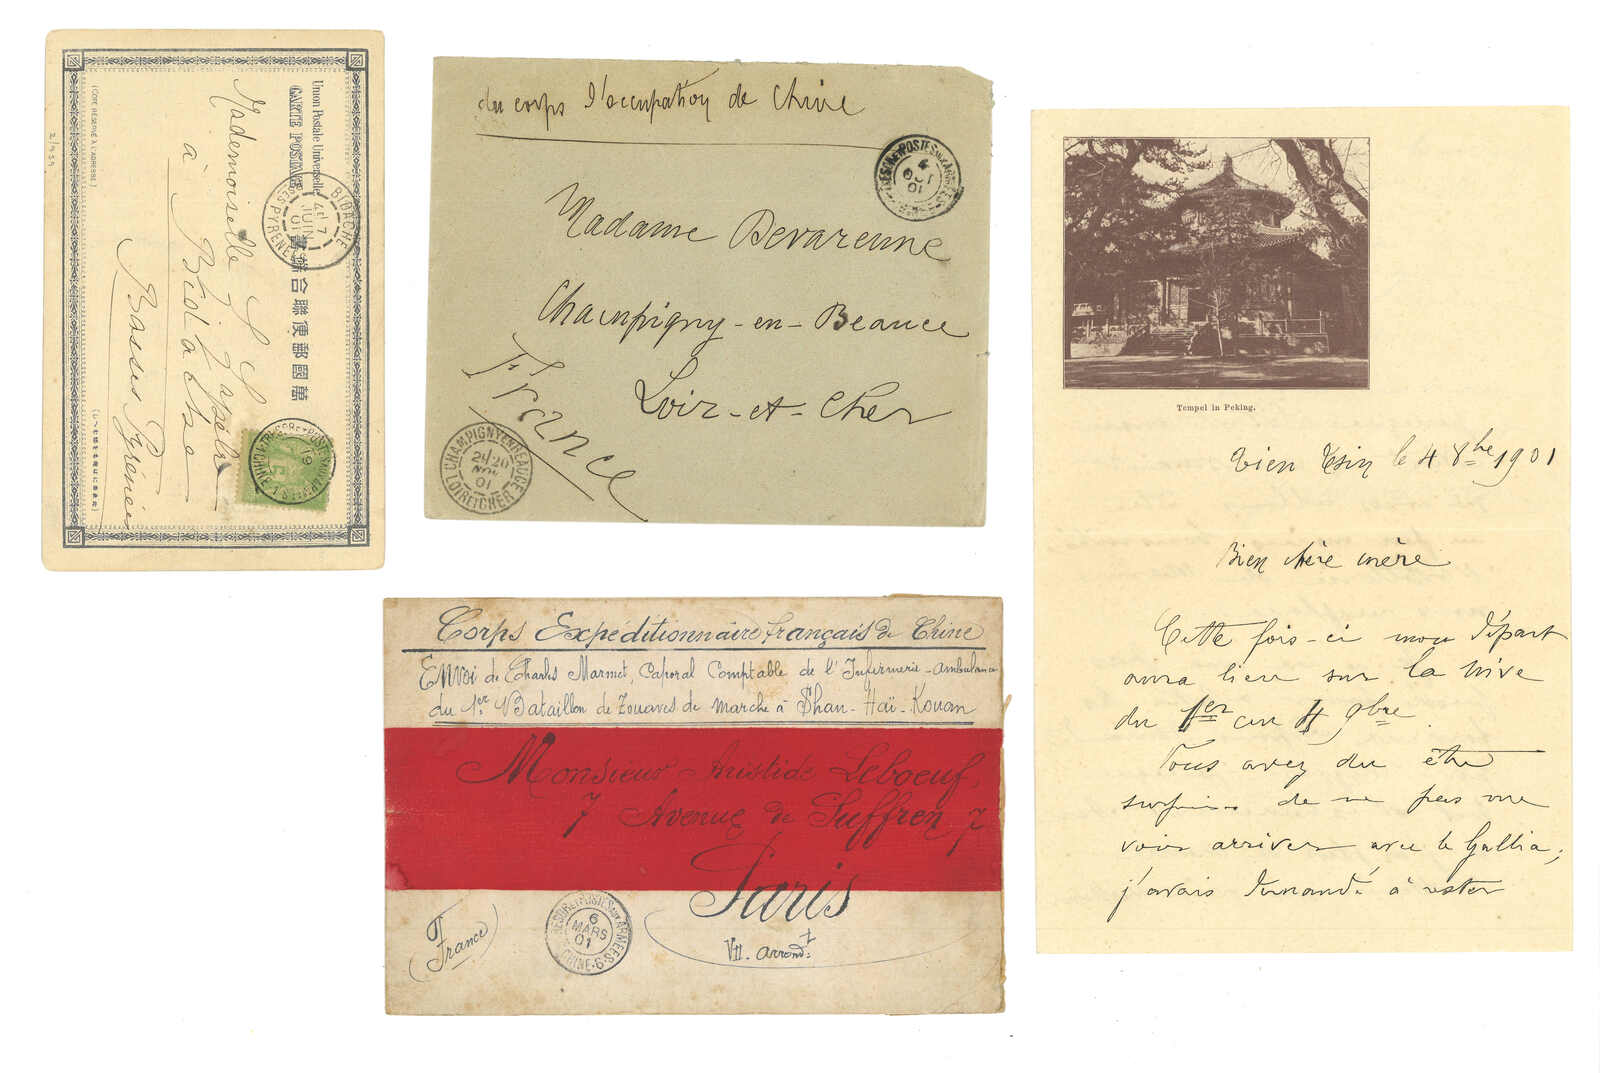 Union Postale Universelle
CARTE POSTALE
萬國郵便聯合端書
(CÔTÉ RÉSERVÉ À L'ADRESSE)
2/939
Mademoiselle
à
Basses Pyrénées
BIDACHE
7
JUIN
01
TRESOR ET POSTES AUX ARMEES
19
CHINE
du corps d'occupation de Chine
TRESOR ET POSTES AUX ARMEES
4
OCT
01
Madame Devarenne
Champigny-en-Beauce
Loir-et-Cher
France
CHAMPIGNY EN BEAUCE
NOV
01
LOIR ET CHER
Corps Expéditionnaire français de Chine
Envoi de Charles Marmet, Caporal Comptable de l'Infirmerie-Ambulance
du 1er Bataillon de Zouaves de marche à Shan-Haï-Kouan
Monsieur Aristide Leboeuf,
7 Avenue de Suffren, 7
Paris
VII. Arrondt
(France)
TRESOR ET POSTES AUX ARMEES
6
MARS
01
CHINE
Tempel in Peking.
Tien Tsin le 4 8bre 1901
Bien chère mère
Cette fois-ci mon départ
aura lieu sur la Nive
du 1er au 4 9bre.
Vous avez du être
surpris de ne pas me
voir arriver avec le Gallia;
j'avais demandé à rester